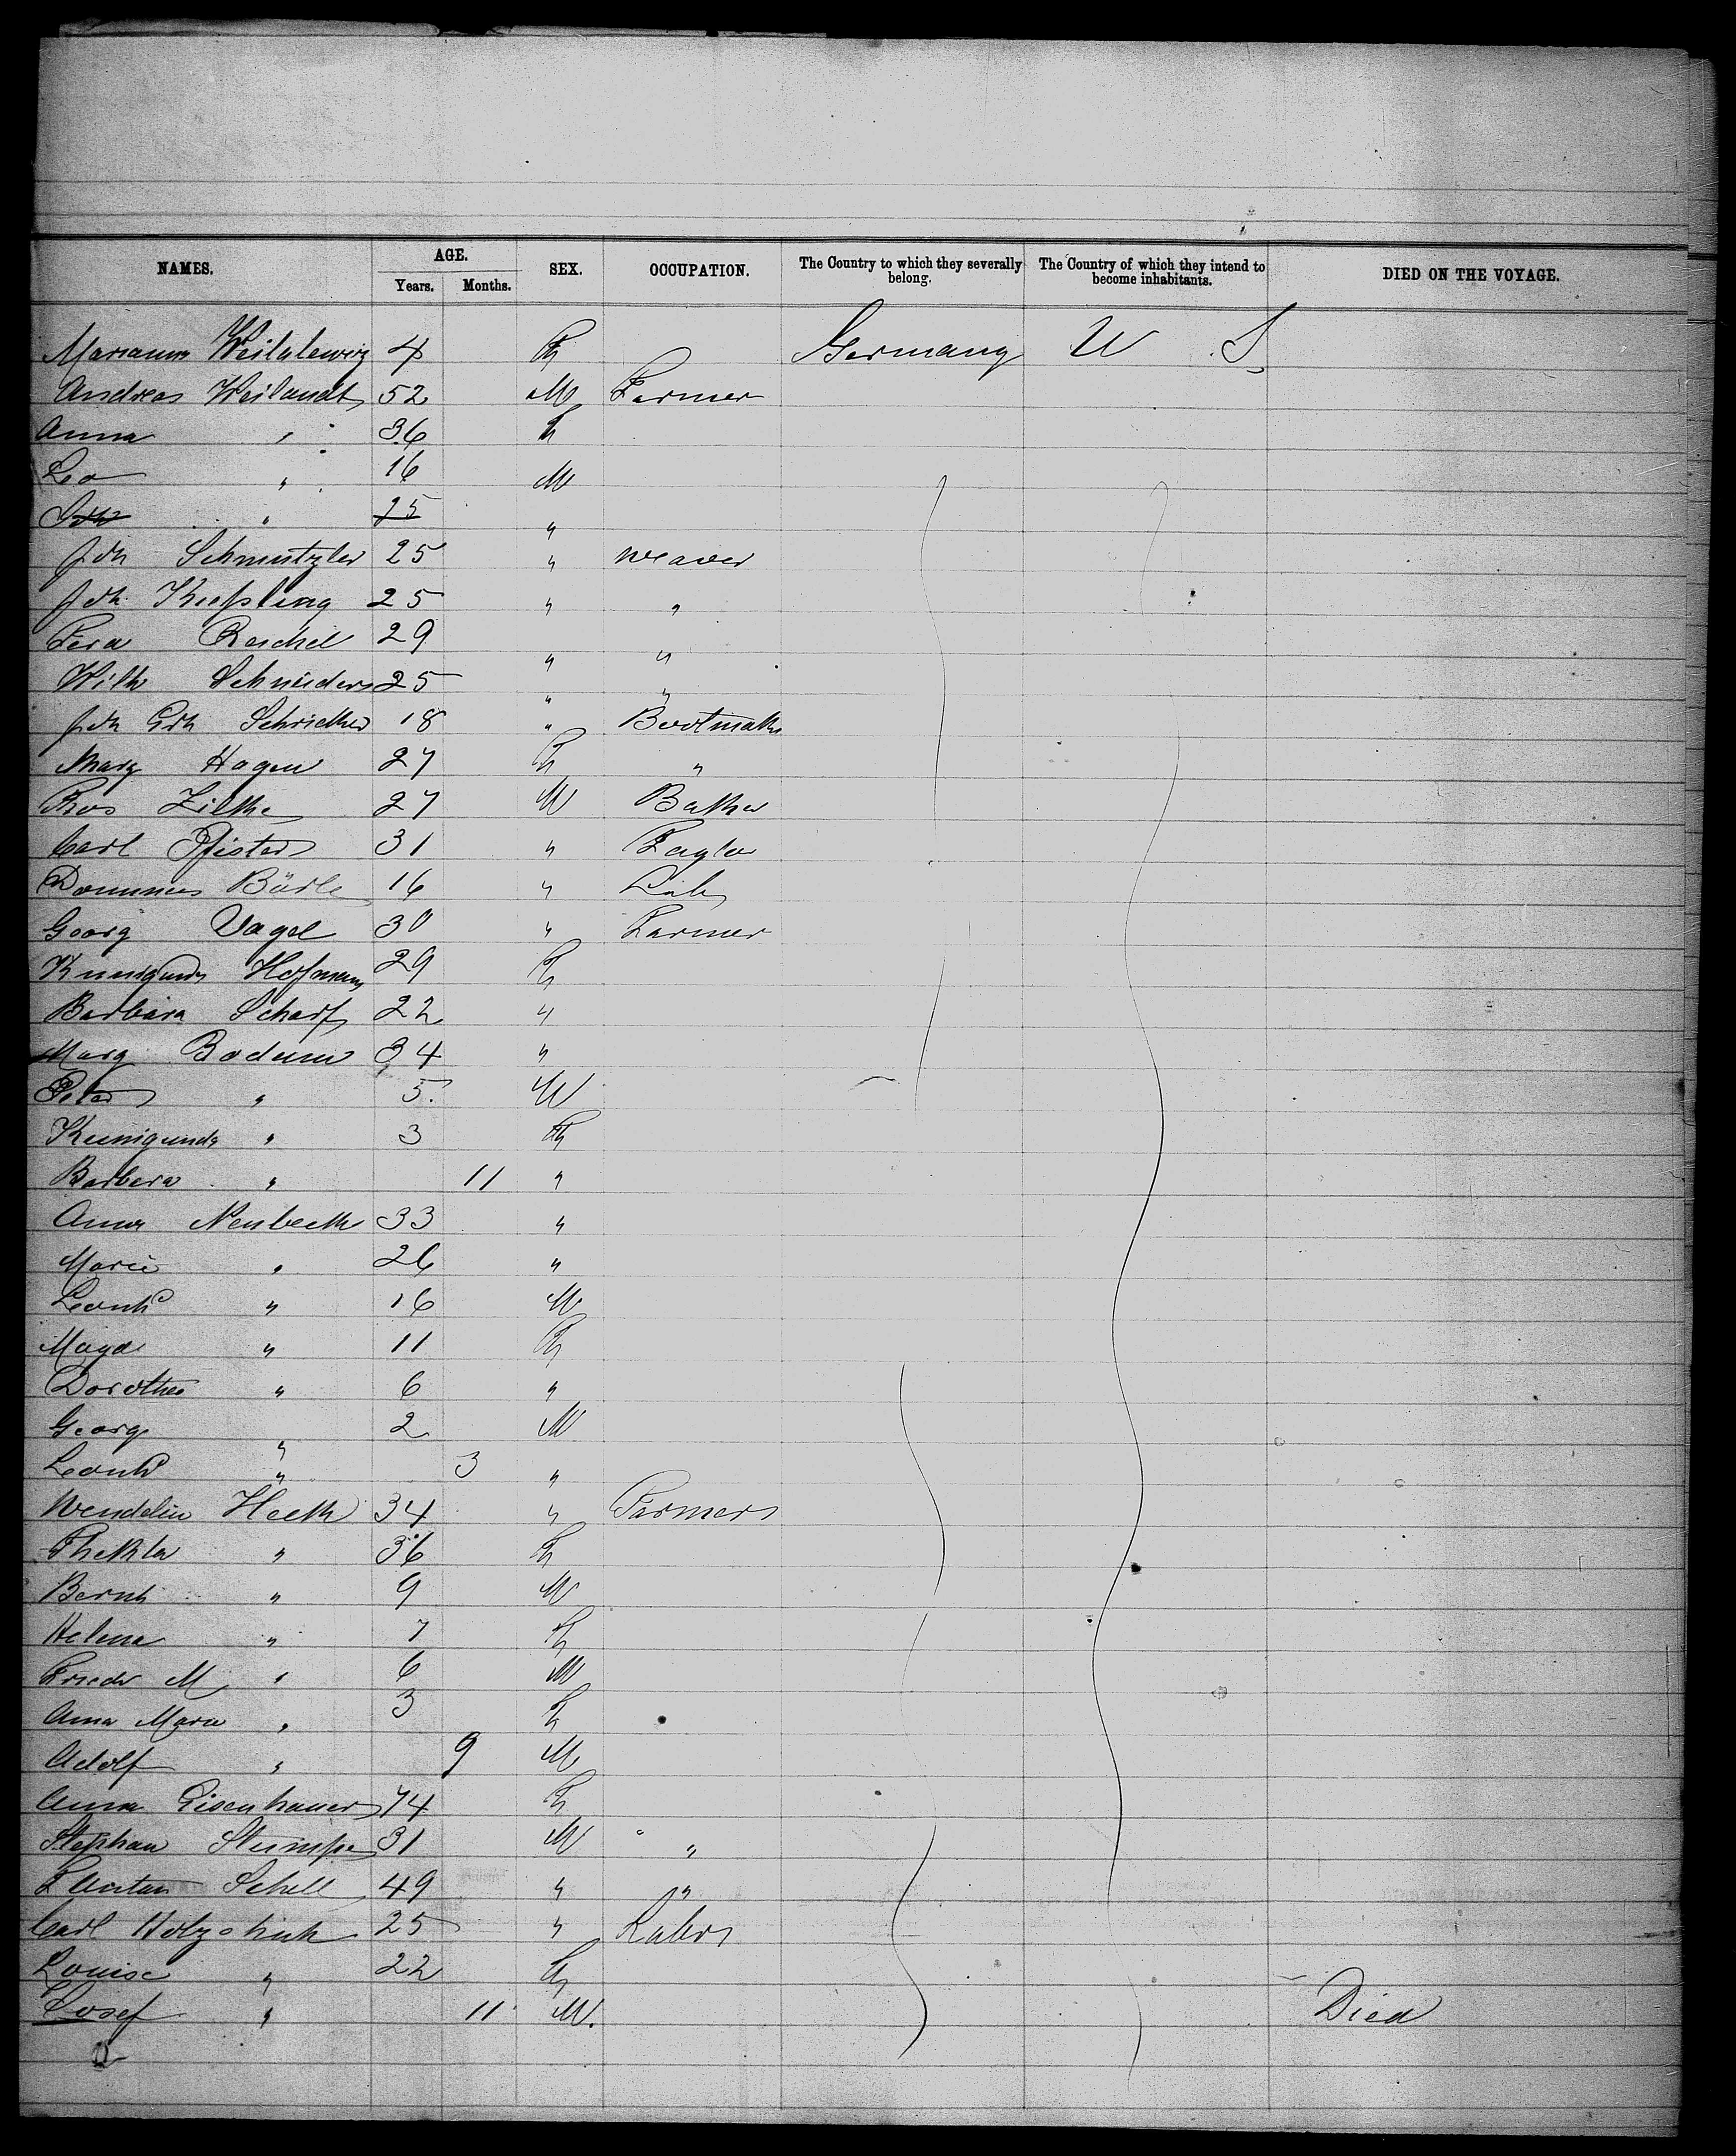 NAMES. AGE. Years. Months. SEX. OCCUPATION. The Country to which they severally belong. The Country of which they intend to become inhabitants. DIED ON THE VOYAGE.
4 F Germany U S
Andreas Weilandt 52 M Farmer
Anna " 36 F
Leo " 16 M
Joh " 25 "
Joh Schmutzler 25 " weaver
Joh Kießling 25 " "
Reichel 29 " "
Wilh Schneider 25 " "
Joh 18 " Bootmak
Marg Hagen 27 F "
27 M Baker
Carl Pfister 31 " Taylor
Bärle 16 " Lab
Georg Vogel 30 " Farmer
Kunigunde Hofmann 29 F
Barbara Scharf 22 "
Marg 34 "
Peter " 5. M
Kunigunde " 3 F
Barbara " 11 "
Anna Neubeck 33 "
Marie " 26 "
Leonhd " 16 M
Magd " 11 F
Dorothea " 6 "
Georg " 2 M
Leonhd " 3 "
Wendelin Heck 34 " Farmer
Thekla " 36 F
Bernh " 9 M
Helena " 7 F
Friedr M " 6 M
Anna Maria " 3 F
Adolf " 9 M
Anna Eisenhauer 74 F
Stephan Stumpf 31 M " "
Schell 49 " "
Carl 25 " Labor
Louise " 22 F
Josef " 11 M. Died